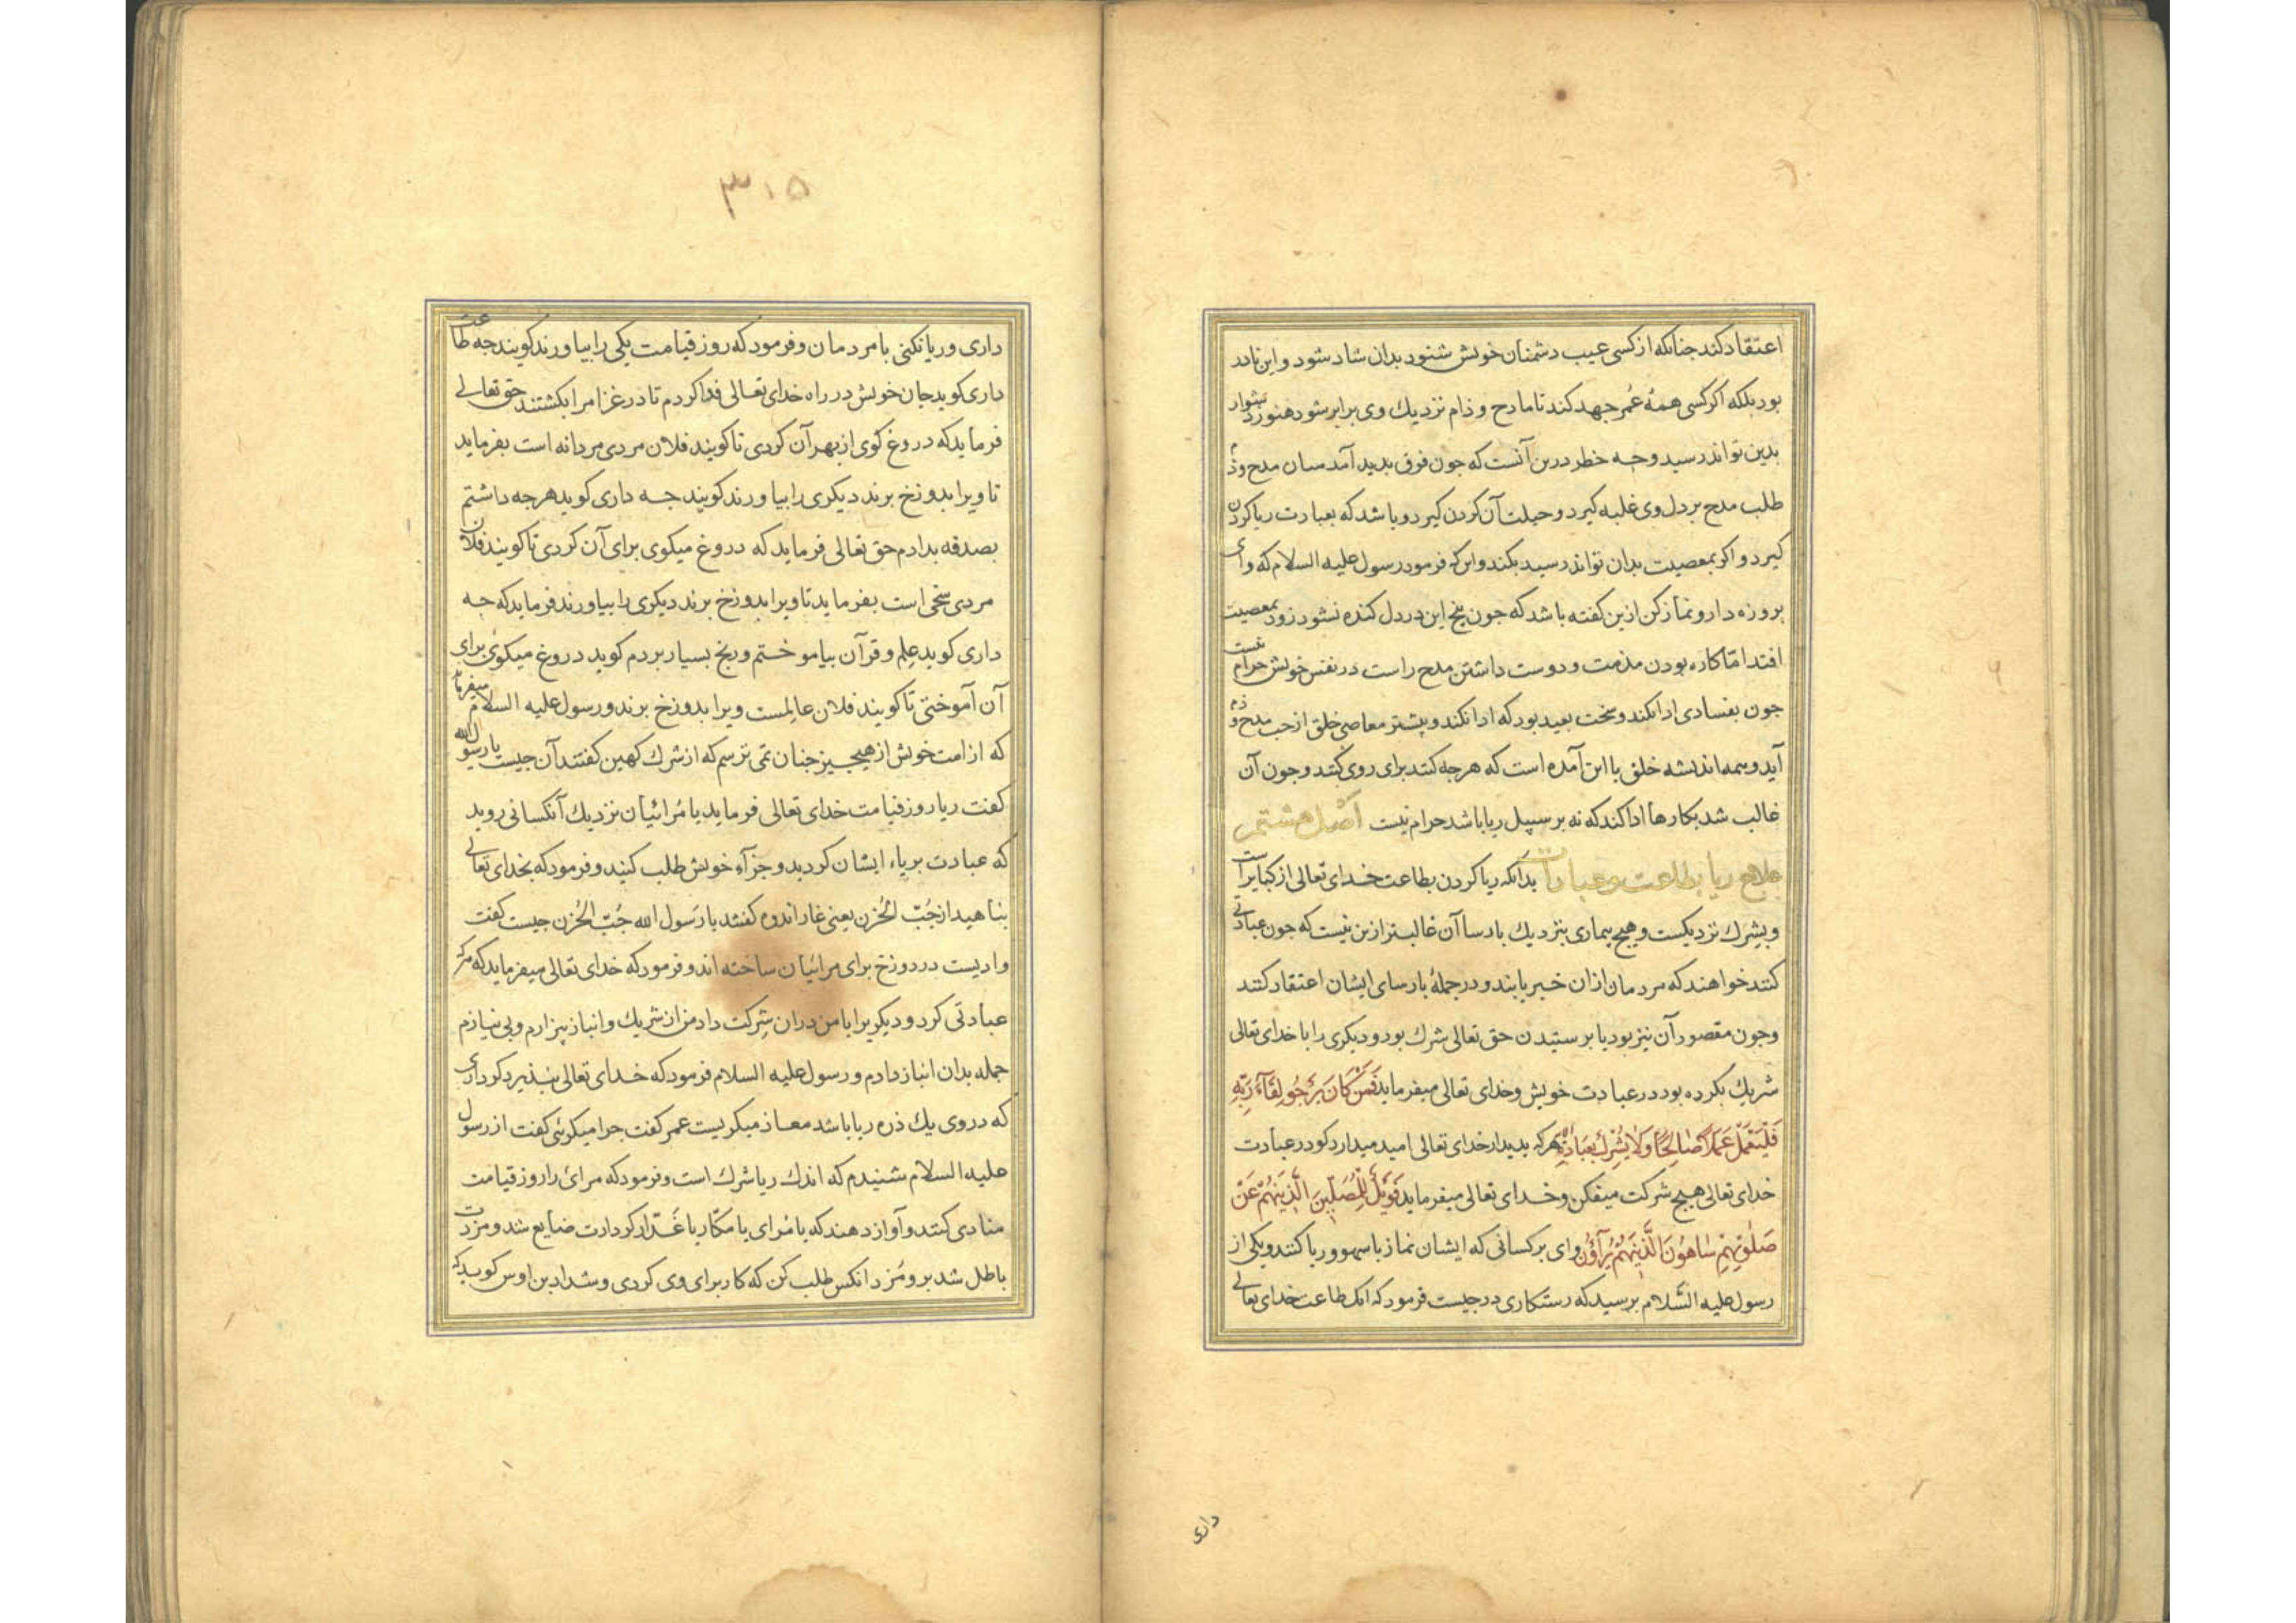 اعتقاد کند جنانکه از کسی عیب دشمنان خویش شنود بدان شاد شود و این نادر
بود بلکه اکر کسی همهٔ عُمر جهد کند تا مادح و ذام نزدیك وی برابر شود هنوز دشوار
بدین تواند رسید وجه خطر درین آنست که جون فرق بدید آمد میان مدح و ذم
طلب مدح بر دل وی غلبه کیرد و حیلت آن کردن کیرد و باشد که بعبادت ریا کردن
کیرد و اکر بمعصیت بدان تواند رسید بکند و این که فرمود رسول علیه السلام که وای
بر روزه دار و نماز کن ازین کفته باشد که جون بیخ این در دل کنده نشود زود بمعصیت
افتد امّا کاره بودن مذمت و دوست داشتن مدح راست در نفس خویش حرام نیست
جون بفسادی ادا نکند و سخت بعید بود که ادا نکند و بیشتر معاصی خلق از حب مدح و ذم
آید و همه اندیشه خلق با این آمده است که هرجه کنند برای روی کنند و جون آن
غالب شد بکارها ادا کند که نه بر سبیل ریا باشد حرام نیست اَصل هشتم
علاج ریا بطاعت و عبادات بدانکه ریا کردن بطاعت خدای تعالی از کبایر است
و بشرك نزدیکست و هیج بیماری بنزدیك بارسا آن غالبتر ازین نیست که جون عبادتی
کنند خواهند که مردمان ازان خبر یابند و در جملهٔ بارسای ایشان اعتقاد کنند
وجون مقصود آن نیز بود با برستیدن حق تعالی شرك بود و دیکری را با خدای تعالی
شریك بکرده بود در عبادت خویش وخدای تعالی میفرماید فَمَن کَانَ یَرْجُو لِقَآءَ رَبِّهِ
فَلْیَعْمَلْ عَمَلاً صَالِحًا وَلاَ یُشْرِكْ بِعِبَادَةِ هر که بدیدار خدای تعالی امید میدارد کو در عبادت
خدای تعالی هیج شرکت میفکن و خدای تعالی میفرماید فَوَیْلٌ لِلْمُصَلِّینَ الَّذِینَ هُمْ عَنْ
صَلٰوتِهِمْ سَاهُونَ الَّذِینَ هُمْ یُرَآؤُنَ وای بر کسانی که ایشان نماز با سهو و ریا کنند و یکی از
رسول علیه السّلام برسید که رستکاری در جیست فرمود که انك طاعت خدای تعالی
داری
۳۱۵
داری و ریا نکنی با مردمان و فرمود که روز قیامت یکی را بیاورند کویند جه طاعت
داری کوید جان خویش در راه خدای تعالی فدا کردم تا در غزا مرا بکشتند حق تعالی
فرماید که دروغ کوی از بهر آن کردی تا کویند فلان مردی مردانه است بفرماید
تا ویرا بدوزخ برند دیکری را بیاورند کویند جه داری کوید هرجه داشتم
بصدقه بدادم حق تعالی فرماید که دروغ میکوی برای آن کردی تا کویند فلان
مردی سخی است بفرماید تا ویرا بدوزخ برند دیکری را بیاورند فرماید که جه
داری کوید عِلم و قرآن بیاموختم و رنج بسیار بردم کوید دروغ میکوئ برای
آن آموختی تا کویند فلان عالِمست ویرا بدوزخ برند و رسول علیه السلام میفرماید
که از امت خویش از هیچ جیز جنان نمی ترسم که از شرك کهین کفتند آن جیست یا رسول الله
کفت ریا روز قیامت خدای تعالی فرماید یا مُرائیان نزدیك آنکسانی روید
که عبادت بریاء ایشان کردید و جزآء خویش طلب کنید و فرمود که بخدای تعالی
بناهید از جُبّ الحُزن یعنی غار اندوه کفتند یا رسول الله جُبّ الحُزن جیست کفت
وادیست در دوزخ برای مرائیان ساخته اند و فرمود که خدای تعالی میفرماید که هرکه
عبادتی کرد و دیکریرا با من دران شِرکت داد من از شریك و انباز بیزارم و بی نیازم
جمله بدان انباز دادم و رسول علیه السلام فرمود که خدای تعالی نبذیرد کرداری
که در وی یك ذره ریا باشد معاذ میکریست عمر کفت جرا میکرئی کفت از رسول
علیه السلام شنیدم که اندك ریا شرك است و فرمود که مرائ را روز قیامت
منادی کنند و آواز دهند که یا مُرای یا مکّار یا غَدّار کردارت ضایع شد و مزدت
باطل شد برو و مُزد از انکس طلب کن که کار برای وی کردی و شداد بن اوس کوید که